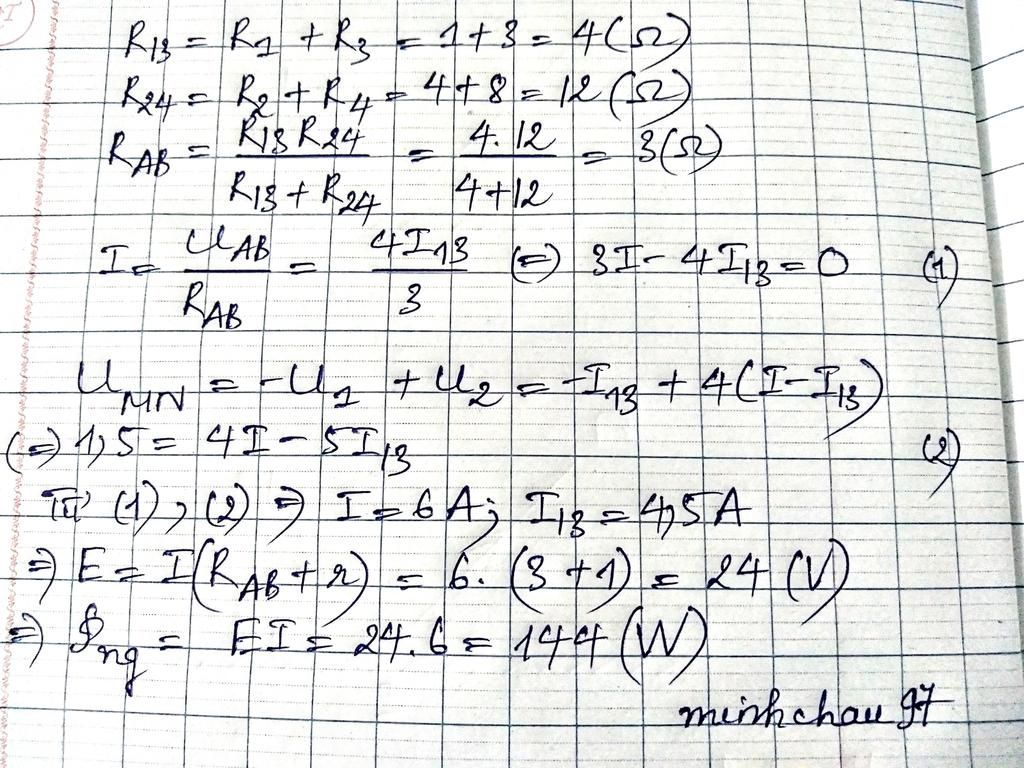 R13 = R1 + R3 = 1+3 = 4(Ω)
R24 = R2 + R4 = 4+8 = 12 (Ω)
RAB = R13 R24 / R13 + R24 = 4.12 / 4+12 = 3(Ω)
I = UAB / RAB = 4I13 / 3 (=) 3I - 4I13 = 0 (1)
UMN = -U1 + U2 = -I13 + 4(I-I13)
(=) 1,5 = 4I - 5I13 (2)
Từ (1), (2) ⇒ I = 6A; I13 = 4,5A
⇒ E = I(RAB + r) = 6. (3+1) = 24 (V)
⇒ Png = EI = 24.6 = 144 (W)
minhchau 97